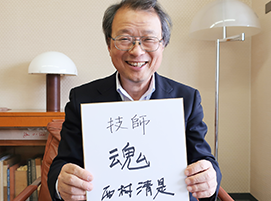 技師
魂
西村清是